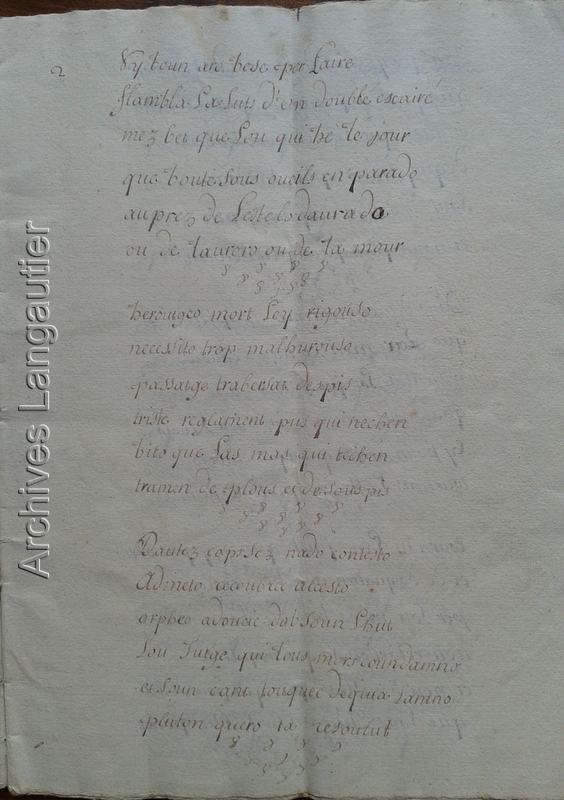 2
Vy toun arc hese per Laire
flambla La Luts d'un double escaire
mez bet que Lou qui he te jour
que boute sous oueils en parado
auprez de Lestelo daurado
ou de tauroro ou de ta mour
herouigeo mort Ley rigouso
necessito trop malhurouso
passatge trabersat despis
triste reglament pus qui nechen
bito que Las mas qui techen
tramen de plous et de souspis
Dautez cops sez nado contesto
Admeto recoubrec alcesto
orpheo adoucic dab soun Lhiut
Lou Jutge qui tous mors coundamno
et soun cant touquec de quia lamno
pluton quero ta resoulut
Archives Langautier